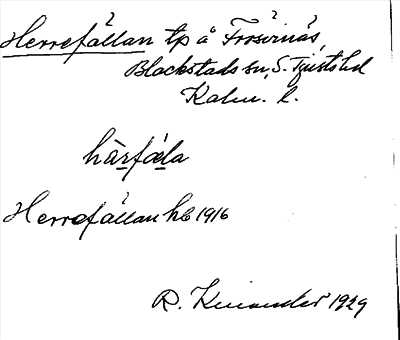 Herrefällan tp å Frosvinäs,
Blackstads sn, S. Tjusts hd
Kalm. l.
hàrfála
Herrefällan hb 1916
R. Kinander 1929